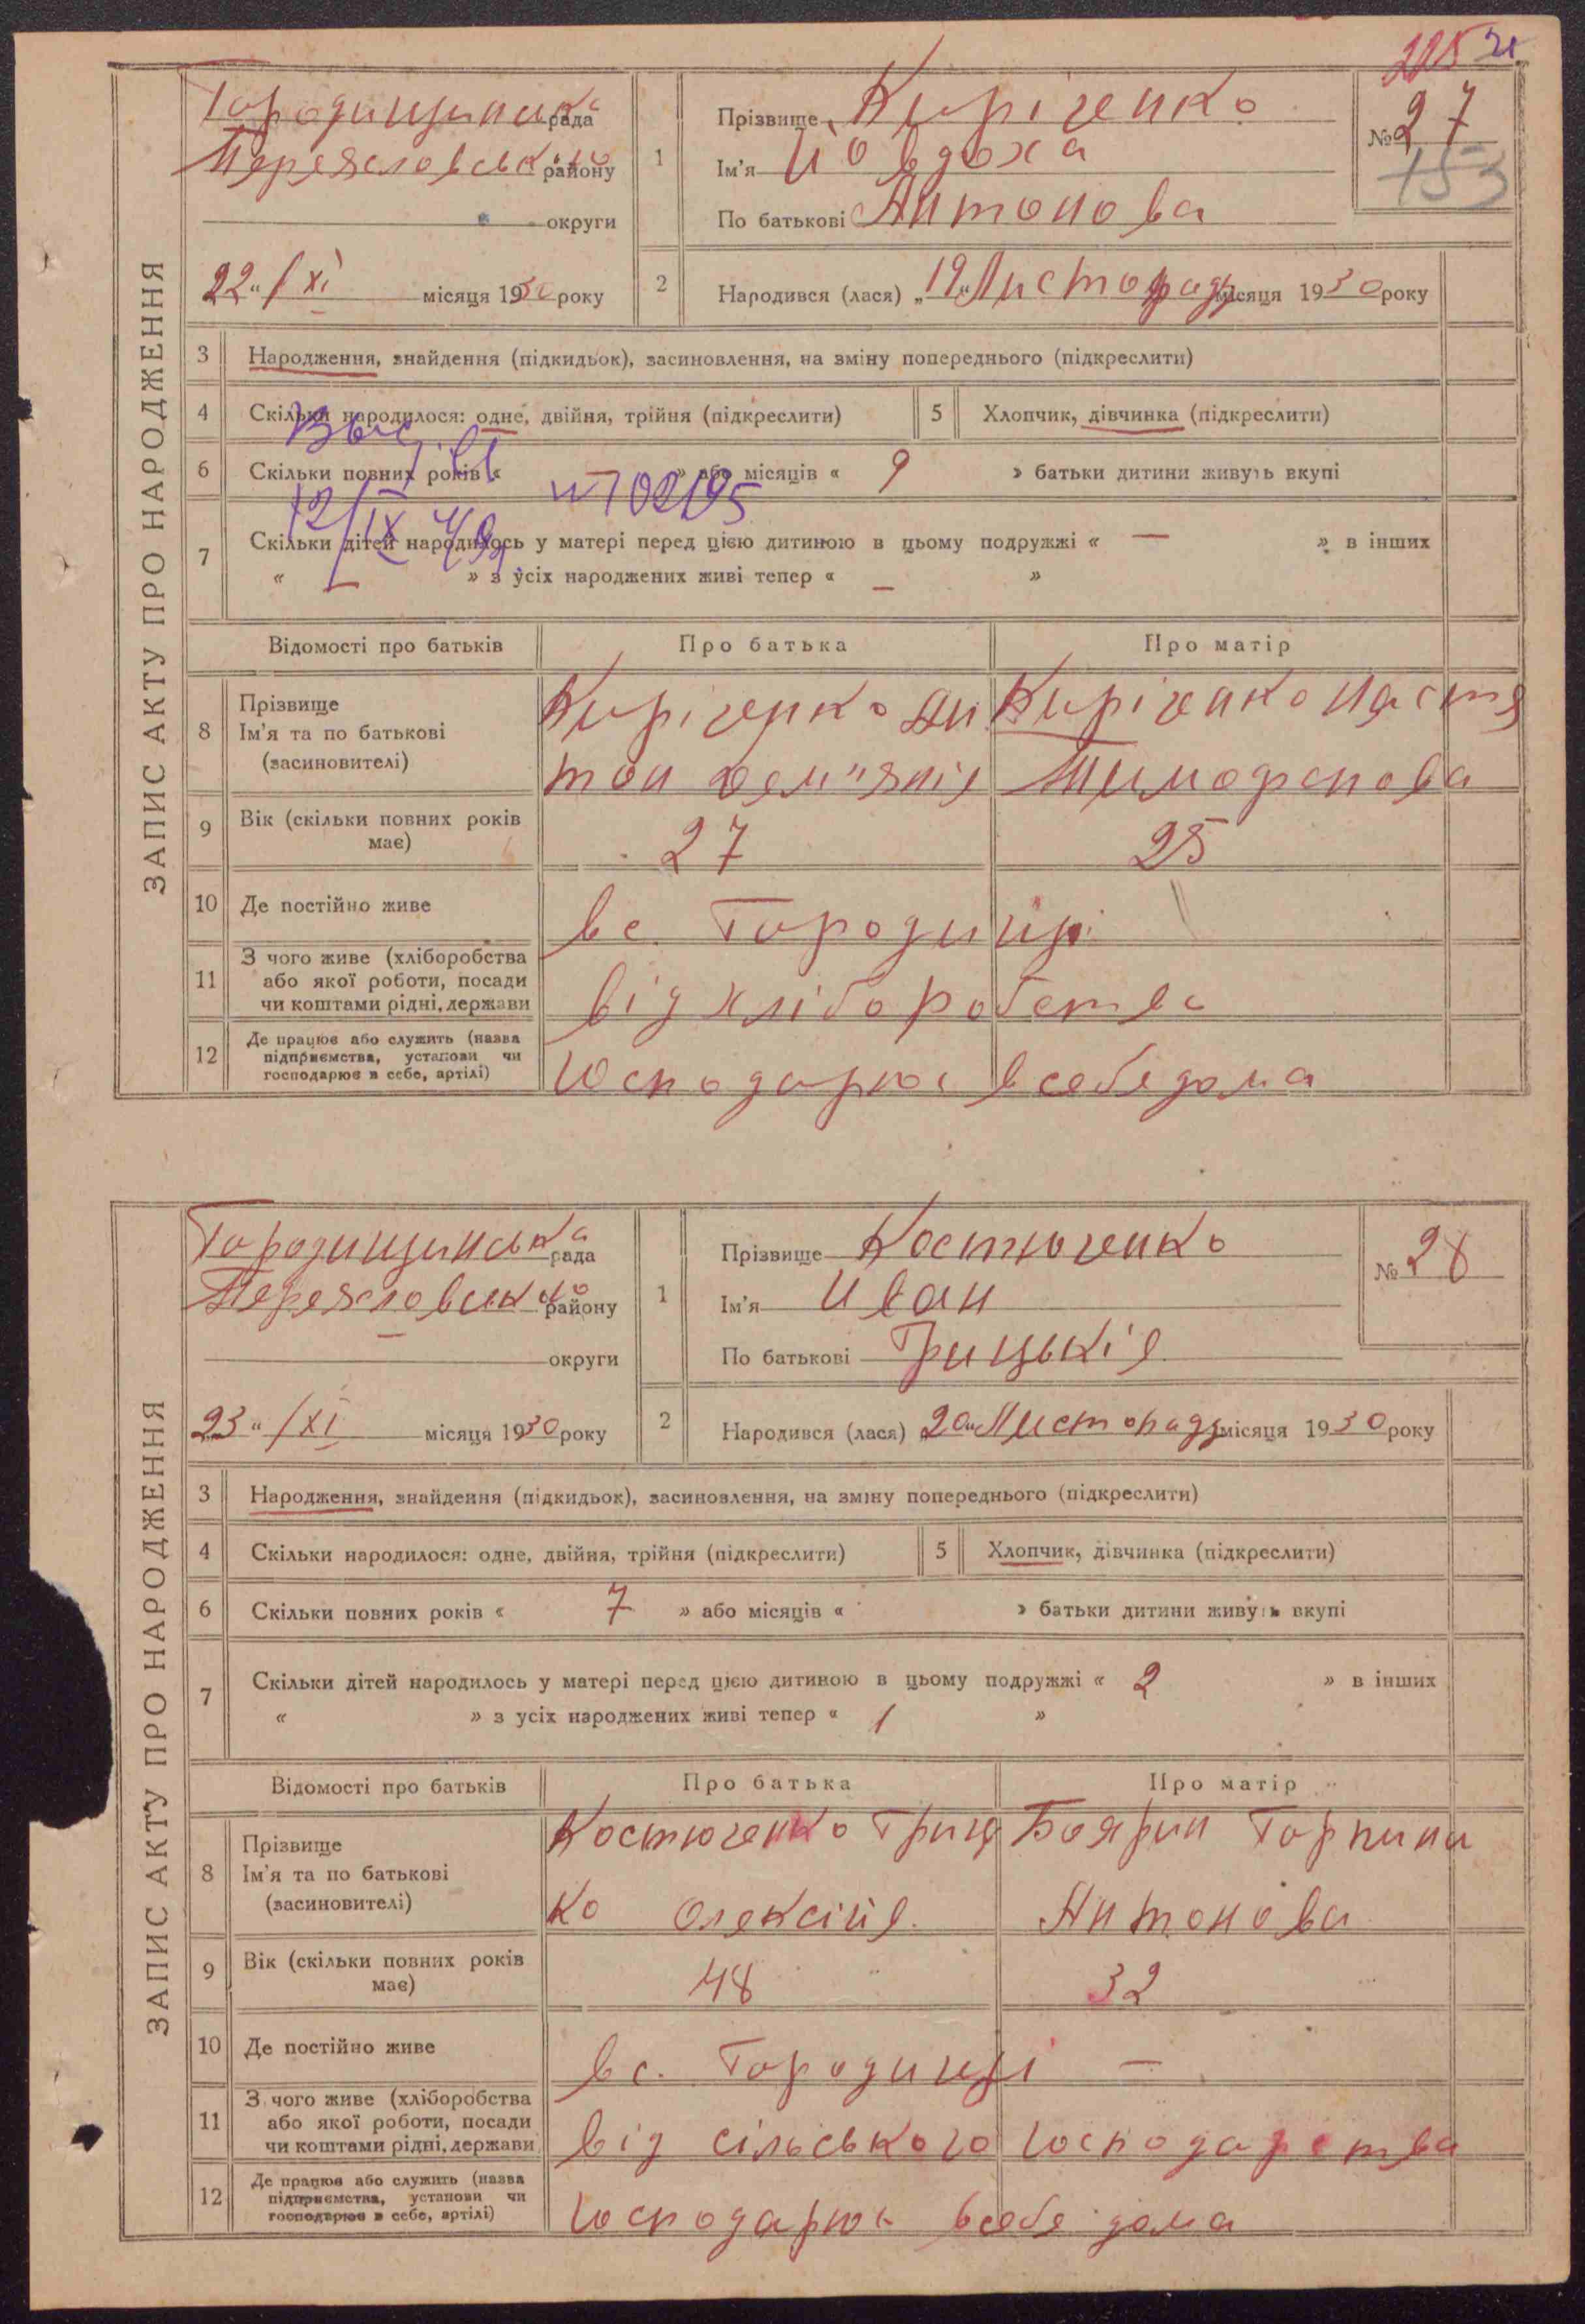 225 21
ЗАПИС АКТУ ПРО НАРОДЖЕННЯ
Городищинська рада
Переяслівського району
округи
22 „/XI місяця 1930 року
1
Прізвище Киріченко
Ім'я Йовдоха
По батькові Антонова
№ 27
153
2
Народився (лася) „19" Листопаду місяця 1930 року
3 Народження, знайдення (підкидьок), засиновлення, на зміну попереднього (підкреслити)
4 Скільки народилося: одне, двійня, трійня (підкреслити)
5 Хлопчик, дівчинка (підкреслити)
6 Скільки повних років « » або місяців « 9 » батьки дитини живуть вкупі
12/IX
7 Скільки дітей народилось у матері перед цією дитиною в цьому подружжі « — » в інших
« — » з усіх народжених живі тепер « — »
Відомості про батьків Про батька Про матір
8 Прізвище
Ім'я та по батькові
(засиновителі)
Киріченко Ан
тон Дем"янів
Киріченко Настя
Тимофєнова
9 Вік (скільки повних років має) 27 25
10 Де постійно живе в с. Городищі
11 З чого живе (хліборобства
або якої роботи, посади
чи коштами рідні, держави
від хліборобства
12 Де працює або служить (назва
підприємства, установи чи
господарює в себе, артілі)
Господарює в себе дома
ЗАПИС АКТУ ПРО НАРОДЖЕННЯ
Городищинська рада
Переяслівського району
округи
23 „/XI місяця 1930 року
1
Прізвище Костюченко
Ім'я Иван
По батькові Грицьків
№ 28
2
Народився (лася) 20 „ Листопаду місяця 1930 року
3 Народження, знайдення (підкидьок), засиновлення, на зміну попереднього (підкреслити)
4 Скільки народилося: одне, двійня, трійня (підкреслити)
5 Хлопчик, дівчинка (підкреслити)
6 Скільки повних років « 7 » або місяців « » батьки дитини живуть вкупі
7 Скільки дітей народилось у матері перед цією дитиною в цьому подружжі « 2 » в інших
« » з усіх народжених живі тепер « 1 »
Відомості про батьків Про батька Про матір
8 Прізвище
Ім'я та по батькові
(засиновителі)
Костюченко Гриц
ко Олексіїв
Боярин Горпина
Антонова
9 Вік (скільки повних років має) 48 32
10 Де постійно живе в с. Городищі —
11 З чого живе (хліборобства
або якої роботи, посади
чи коштами рідні, держави
від сільського господарства
12 Де працює або служить (назва
підприємства, установи чи
господарює в себе, артілі)
Господарює в себе дома